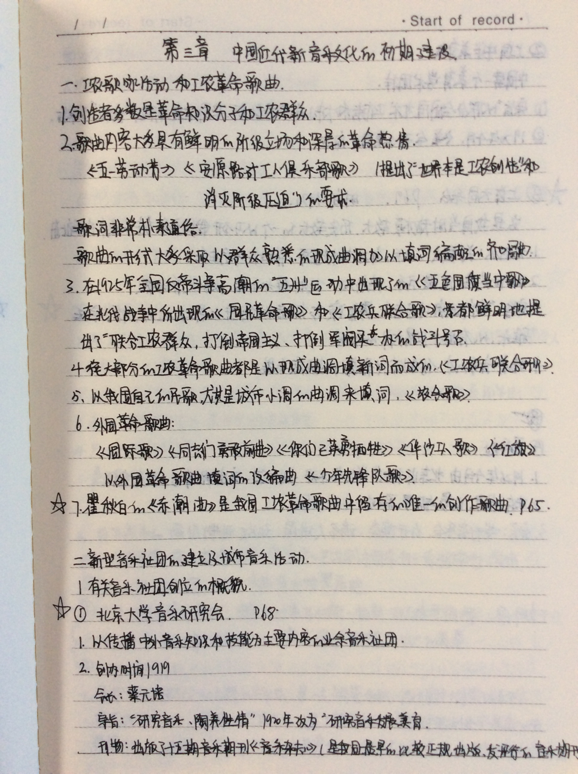 / /
· Start of record ·
第三章 中国近代新音乐文化的初期建设
一.工农歌咏活动和工农革命歌曲.
1.创造者多数是革命知识分子和工农群众.
2.歌曲内容大多具有鲜明的阶级立场和深厚的革命热情.
《五一劳动节》《安源路矿工人俱乐部歌》(提出了"世界本是工农创造"和
消灭阶级压迫")的要求.
歌词非常朴素直俗.
歌曲的形式大多采取以群众熟悉的现成曲调加以填词编配的齐唱歌.
3.在1925年全国反帝斗争高潮的"五卅"运动中出现了的《五色国旗当中歌》
在北伐战争中所出现的《国民革命歌》和《工农兵联合歌》,等都鲜明地提
出了"联合工农群众,打倒帝国主义、打倒军阀"为的战斗号召.
4.绝大部分的工农革命歌曲都是以现成曲调填新词而成的,《工农兵联合起来》.
5.以我国自己的民歌,尤其是城市小调的曲调来填词,《放哨歌》.
6.外国革命歌曲:
《国际歌》《同志们勇敢前进》《你们已英勇牺牲》《华沙工人歌》《红旗》
以外国革命歌曲填词的改编曲《少年先锋队歌》
☆7.瞿秋白的《赤潮曲》是我国工农革命歌曲中仅有的唯一的创作歌曲. P65.
二.新型音乐社团的建立及城市音乐活动.
1.有关音乐社团创立的概貌.
☆① 北京大学音乐研究会. P68
1.以传播中外音乐知识和技能为主要内容的业余音乐社团.
2.创办时间1919
会长:蔡元培
宗旨:"研究音乐、陶养性情"1920年改为"研究音乐发展美育.
刊物:出版了十五期音乐期刊《音乐杂志》(是我国最早的比较正规出版、发行的音乐期刊